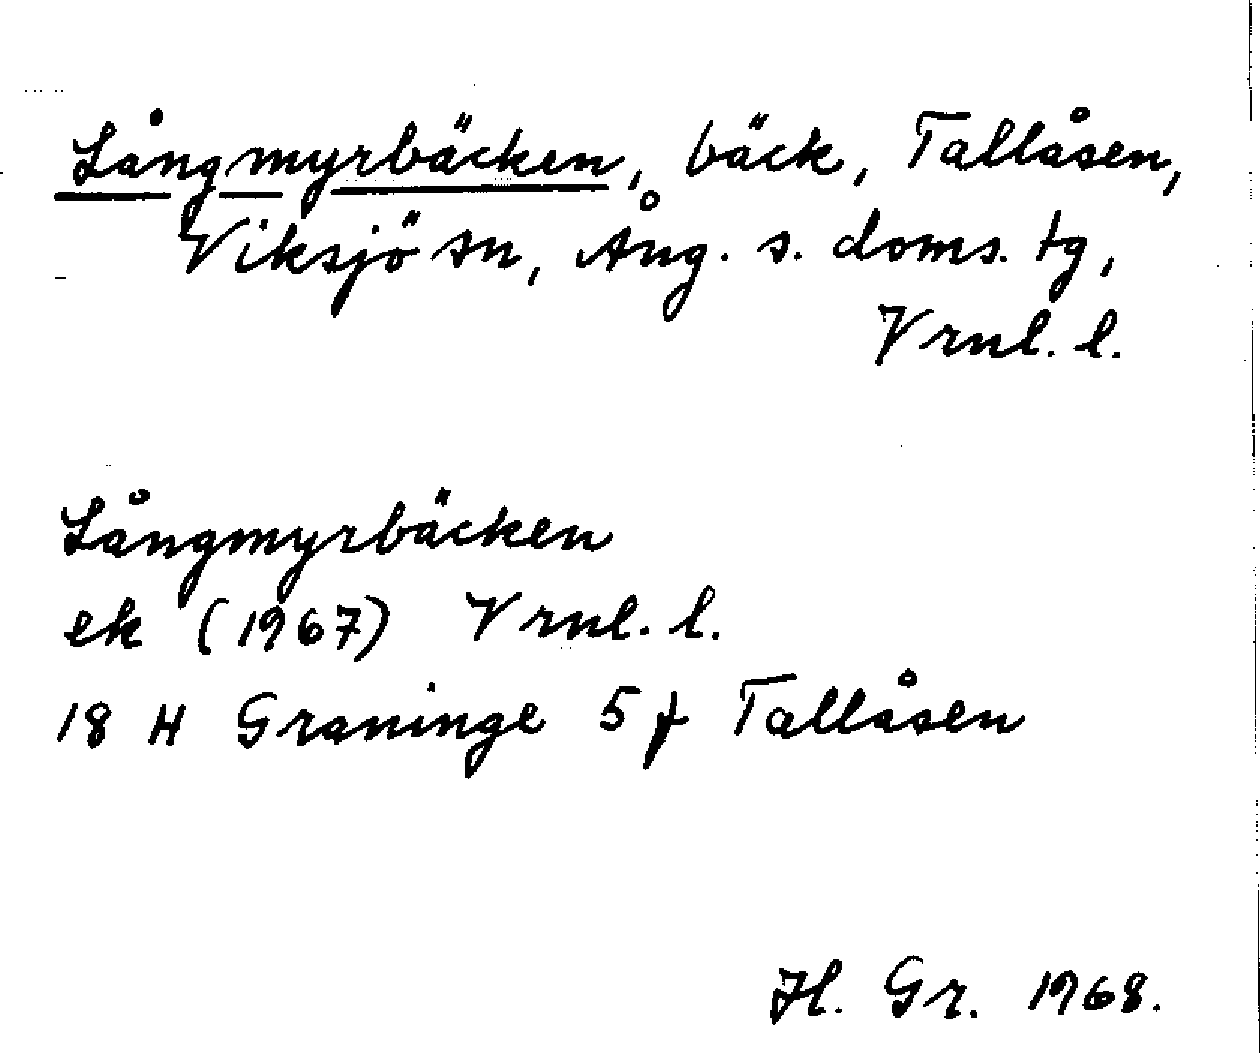 Långmyrbäcken, bäck, Tallåsen,
Viksjö sn, Ång. s. doms. tg,
Vrnl. l.
Långmyrbäcken
ek (1967) Vrnl. l.
18 H Graninge 5 f Tallåsen
H. Gr. 1968.